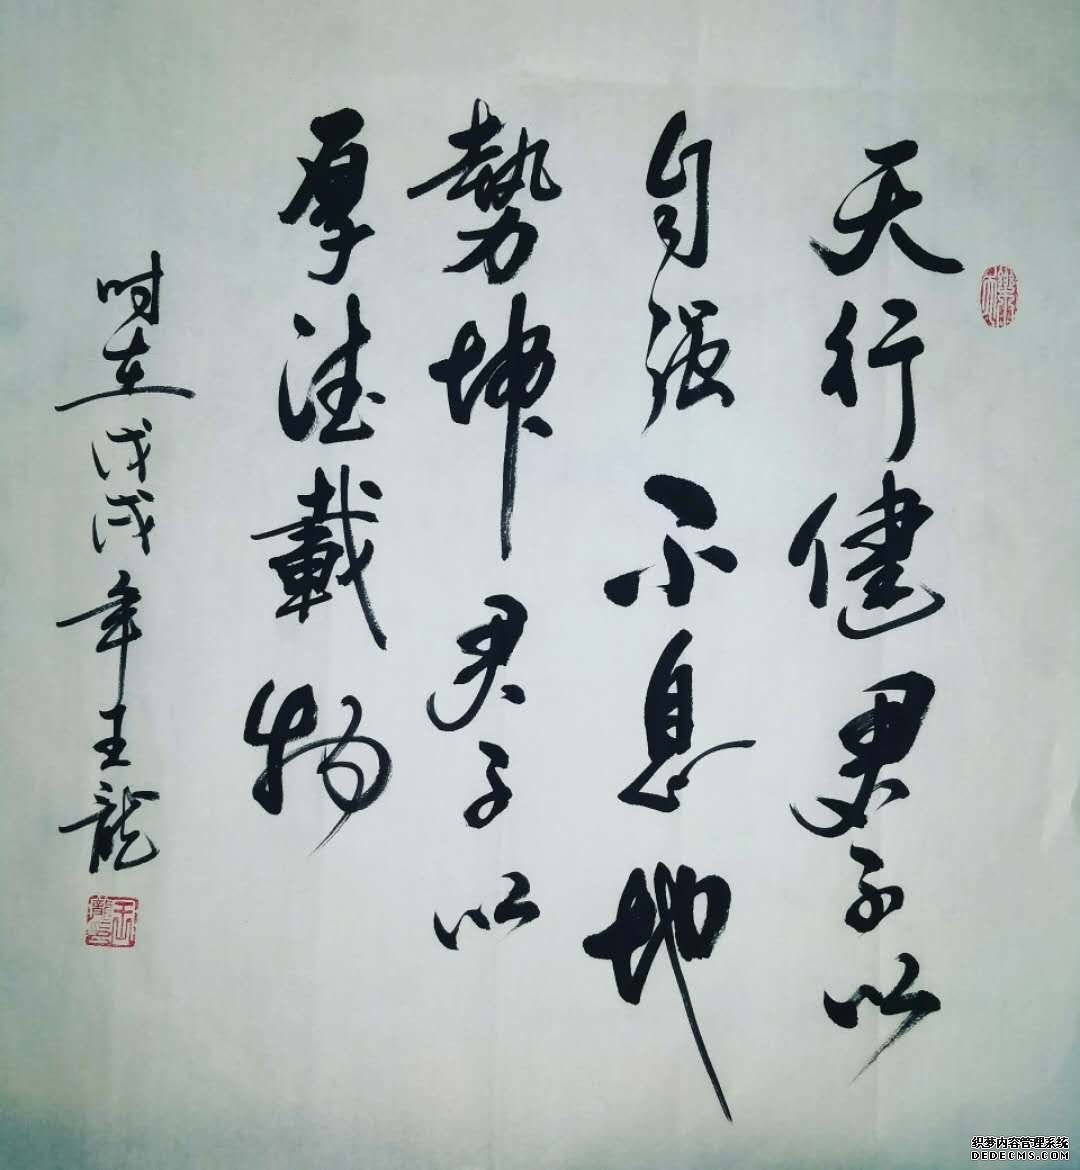 天行健君子以
自强不息地
勢坤君子以
厚德載物
时在戊戌年王龍
织梦内容管理系统
DEDECMS.COM